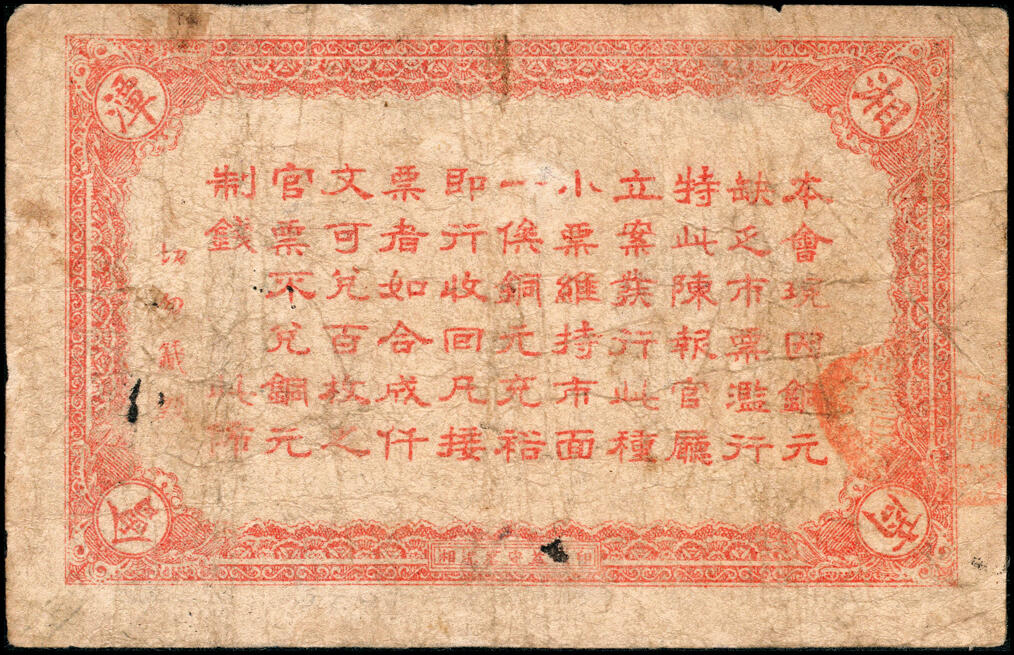 湘
潭
本會現因銅元
缺乏市票濫行
特此陳報官廳
立案發行此種
小票維持市面
一俟銅元充裕
即行收回凡接
票者如合成仟
文可兌百枚之
官票不兌銅元
制錢
佈
會